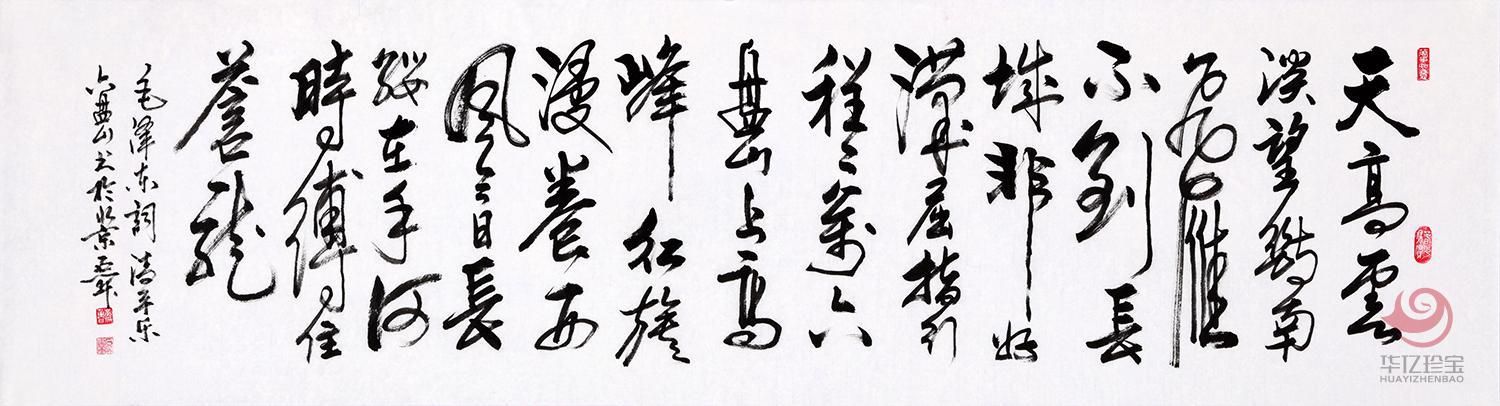 天高雲
淡望斷南
飛雁
不到長
城非好
漢屈指行
程二萬六
盤山上高
峰紅旗
漫卷西
風今日長
纓在手何
時縛住
蒼龍
毛澤東詞清平乐
六盤山书於北京
华亿珍宝
HUAYIZHENBAO